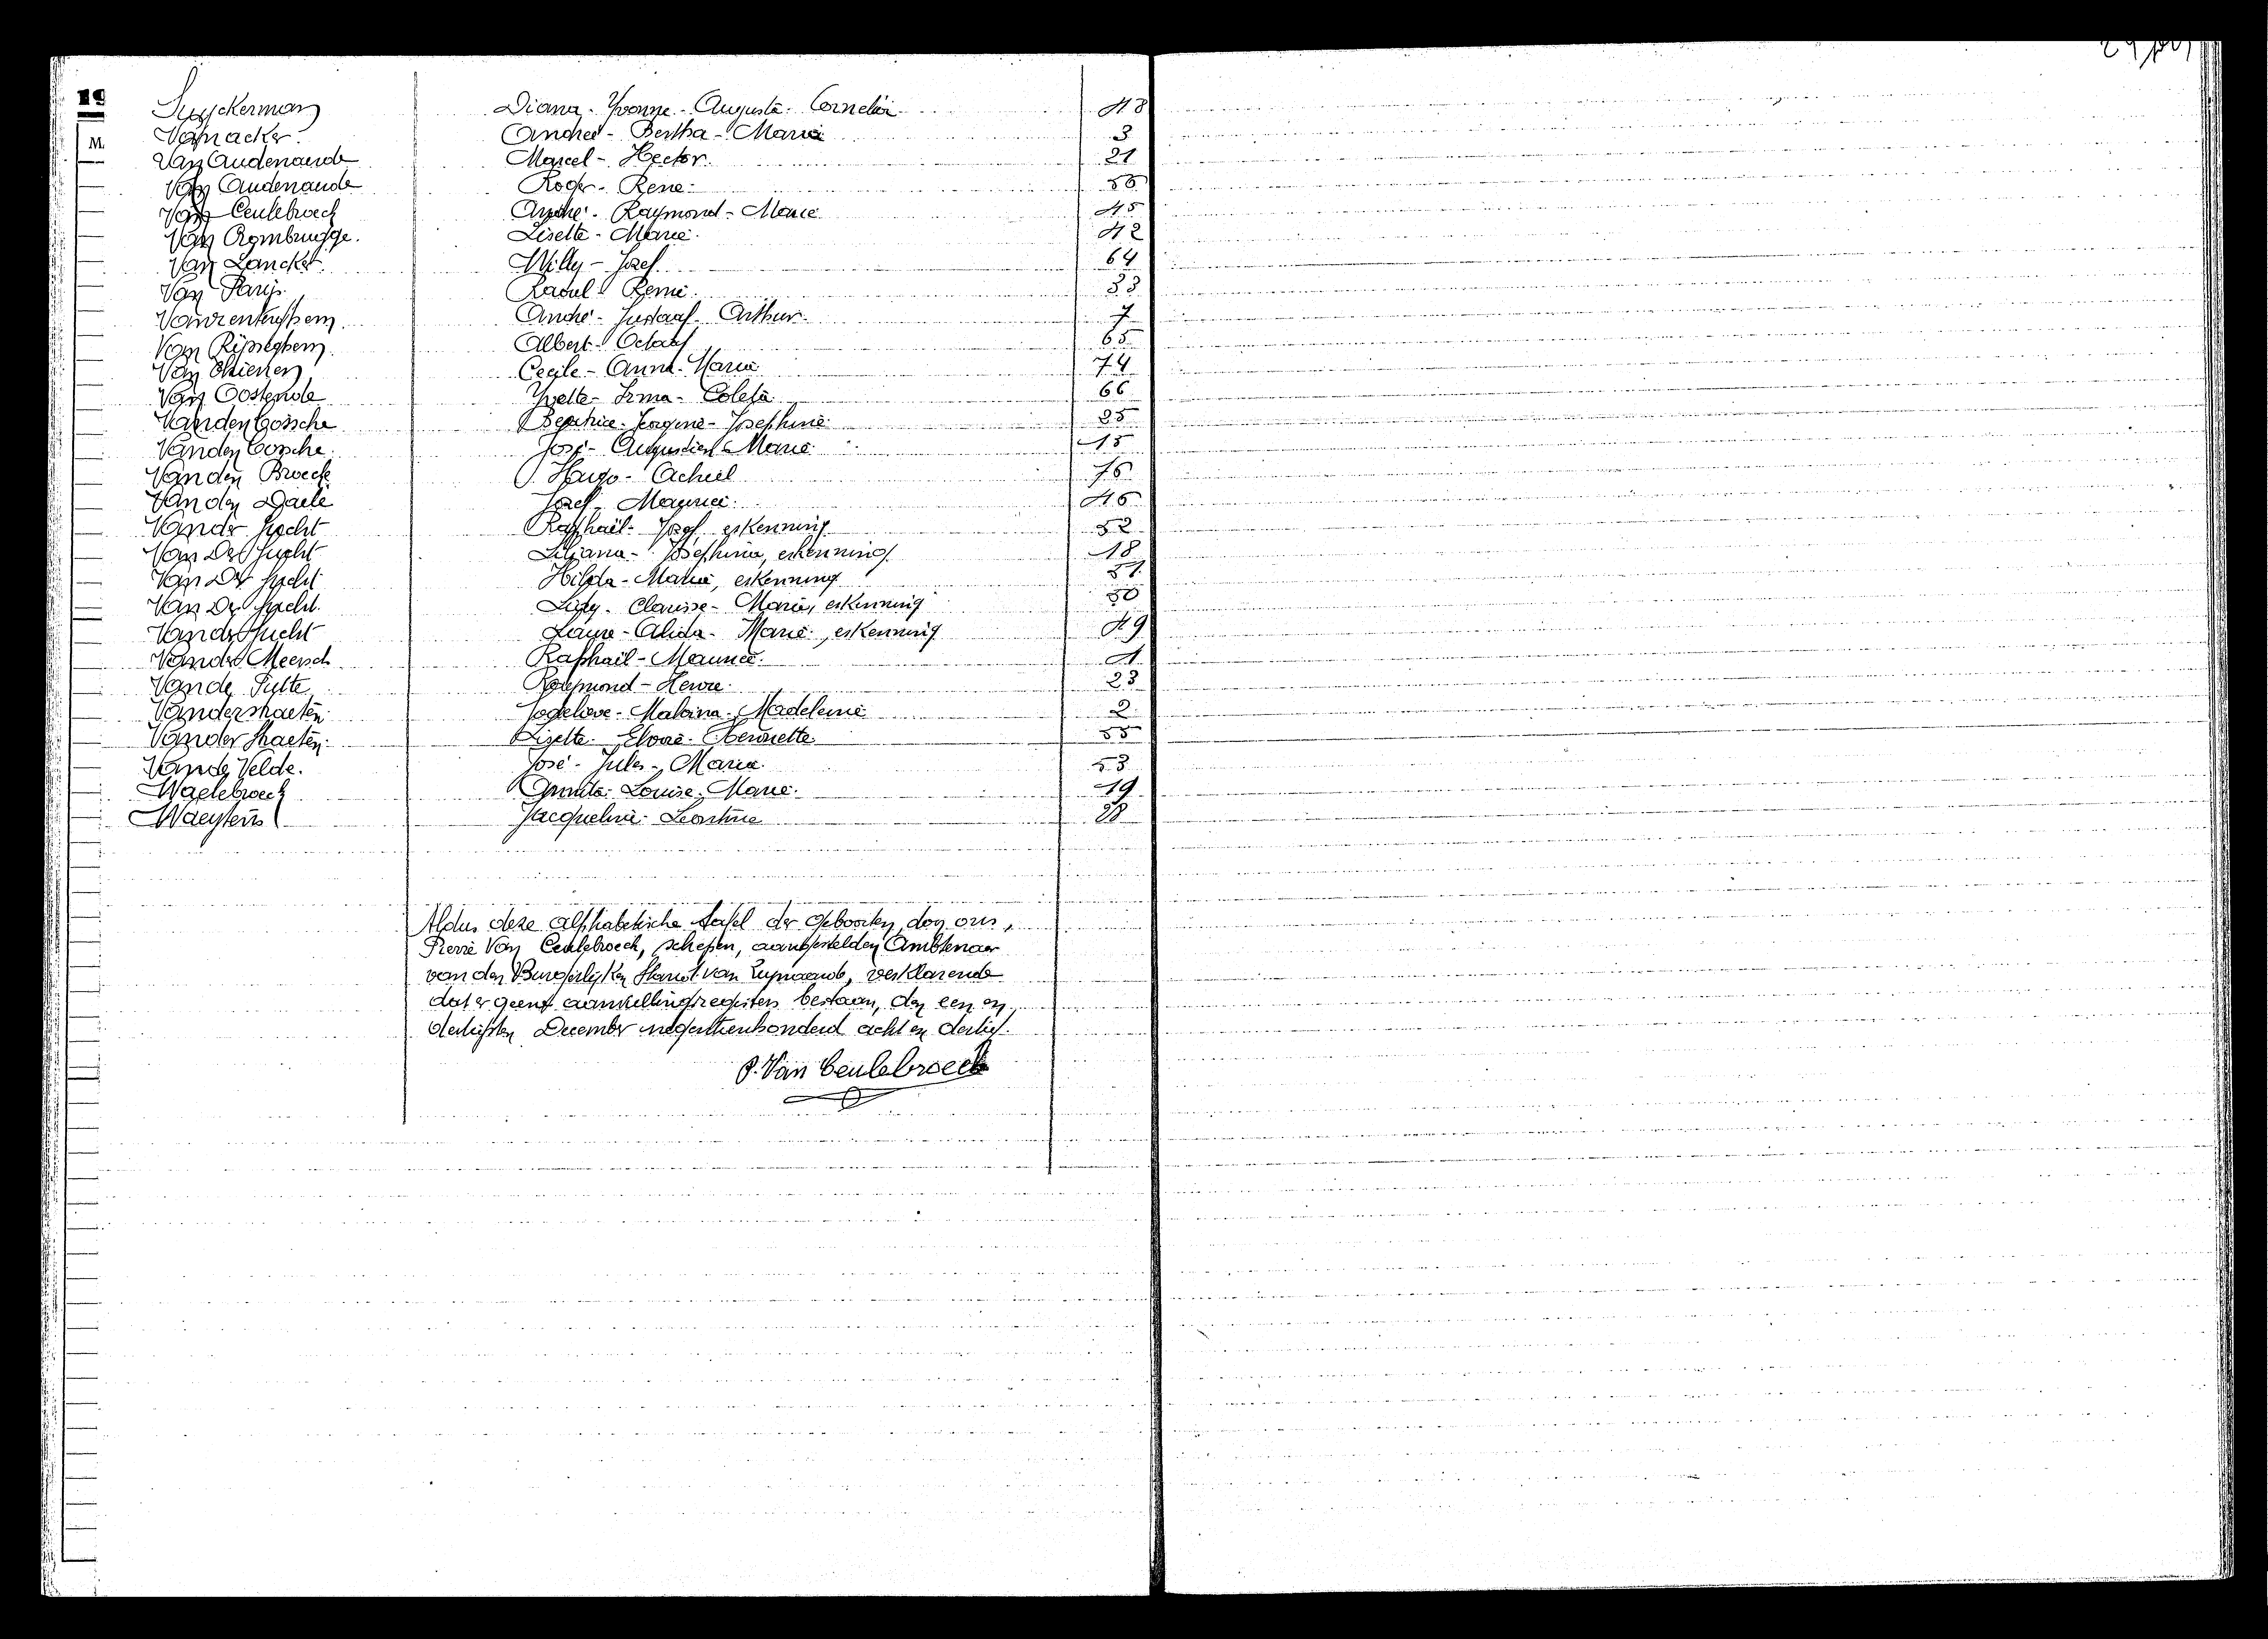 19
Suyckerman Diana - Yvonne - Augusta - Cornelia 48
M. Vanacker Andrée - Bertha - Maria 3
Van Audenaerde Marcel - Hector. 21
Van Audenaerde Roger - René
Van Ceulebroeck André - Raymond - Marie 45
Van Rombrugge. Lisette - Marie. 42
Van Lancker. Willy - Jozef 64
Van Parijs. Raoul - Remi. 33
André - Gustaaf - Arthur. 7
Van Rijsseghem. Albert - Octaaf 65
Van Thienen Cecile - Anna - Maria 74
Van Oostende Yvette - Irma - Coleta 66
Vanden Bossche Beatrice - Josephine 25
Vanden Bossche José - Augustien - Marie 15
Vanden Broeck Hugo - Achiel
Vanden Daele Jozef - Maurice.
Vander Gucht Raphaël - Jozef, erkenning 52
Van Der Gucht Liliana - Josephina, erkenning 18
Van Der Gucht Hilda - Maria, erkenning 51
Van Der Gucht. Lucy - Clarisse - Marie, erkenning 50
Vander Gucht Laura - Alida - Marie, erkenning 49
Vander Meersch Raphaël - Maurice. 1
Vande Putte Raymond - Henri. 23
Vanderstraeten Godelieve - Malvina - Madeleine 2
Vander Straeten. Lisette - Elvire - Henriette. 55
Vande Velde. José - Jules - Maria. 53
Waelebroeck Annita - Louise - Marie. 19
Waeytens Jacqueline - Leontine
Aldus deze alphabetische tafel der Geboorten, door ons,
Pierre Van Ceulebroeck, schepen, aangestelden Ambtenaar
van den Burgerlijken Stand van, verklarende
dat er geene aanvullingsregisters bestaan, den een en
dertigsten December negentienhonderd acht en dertig.
P. Van Ceulebroeck